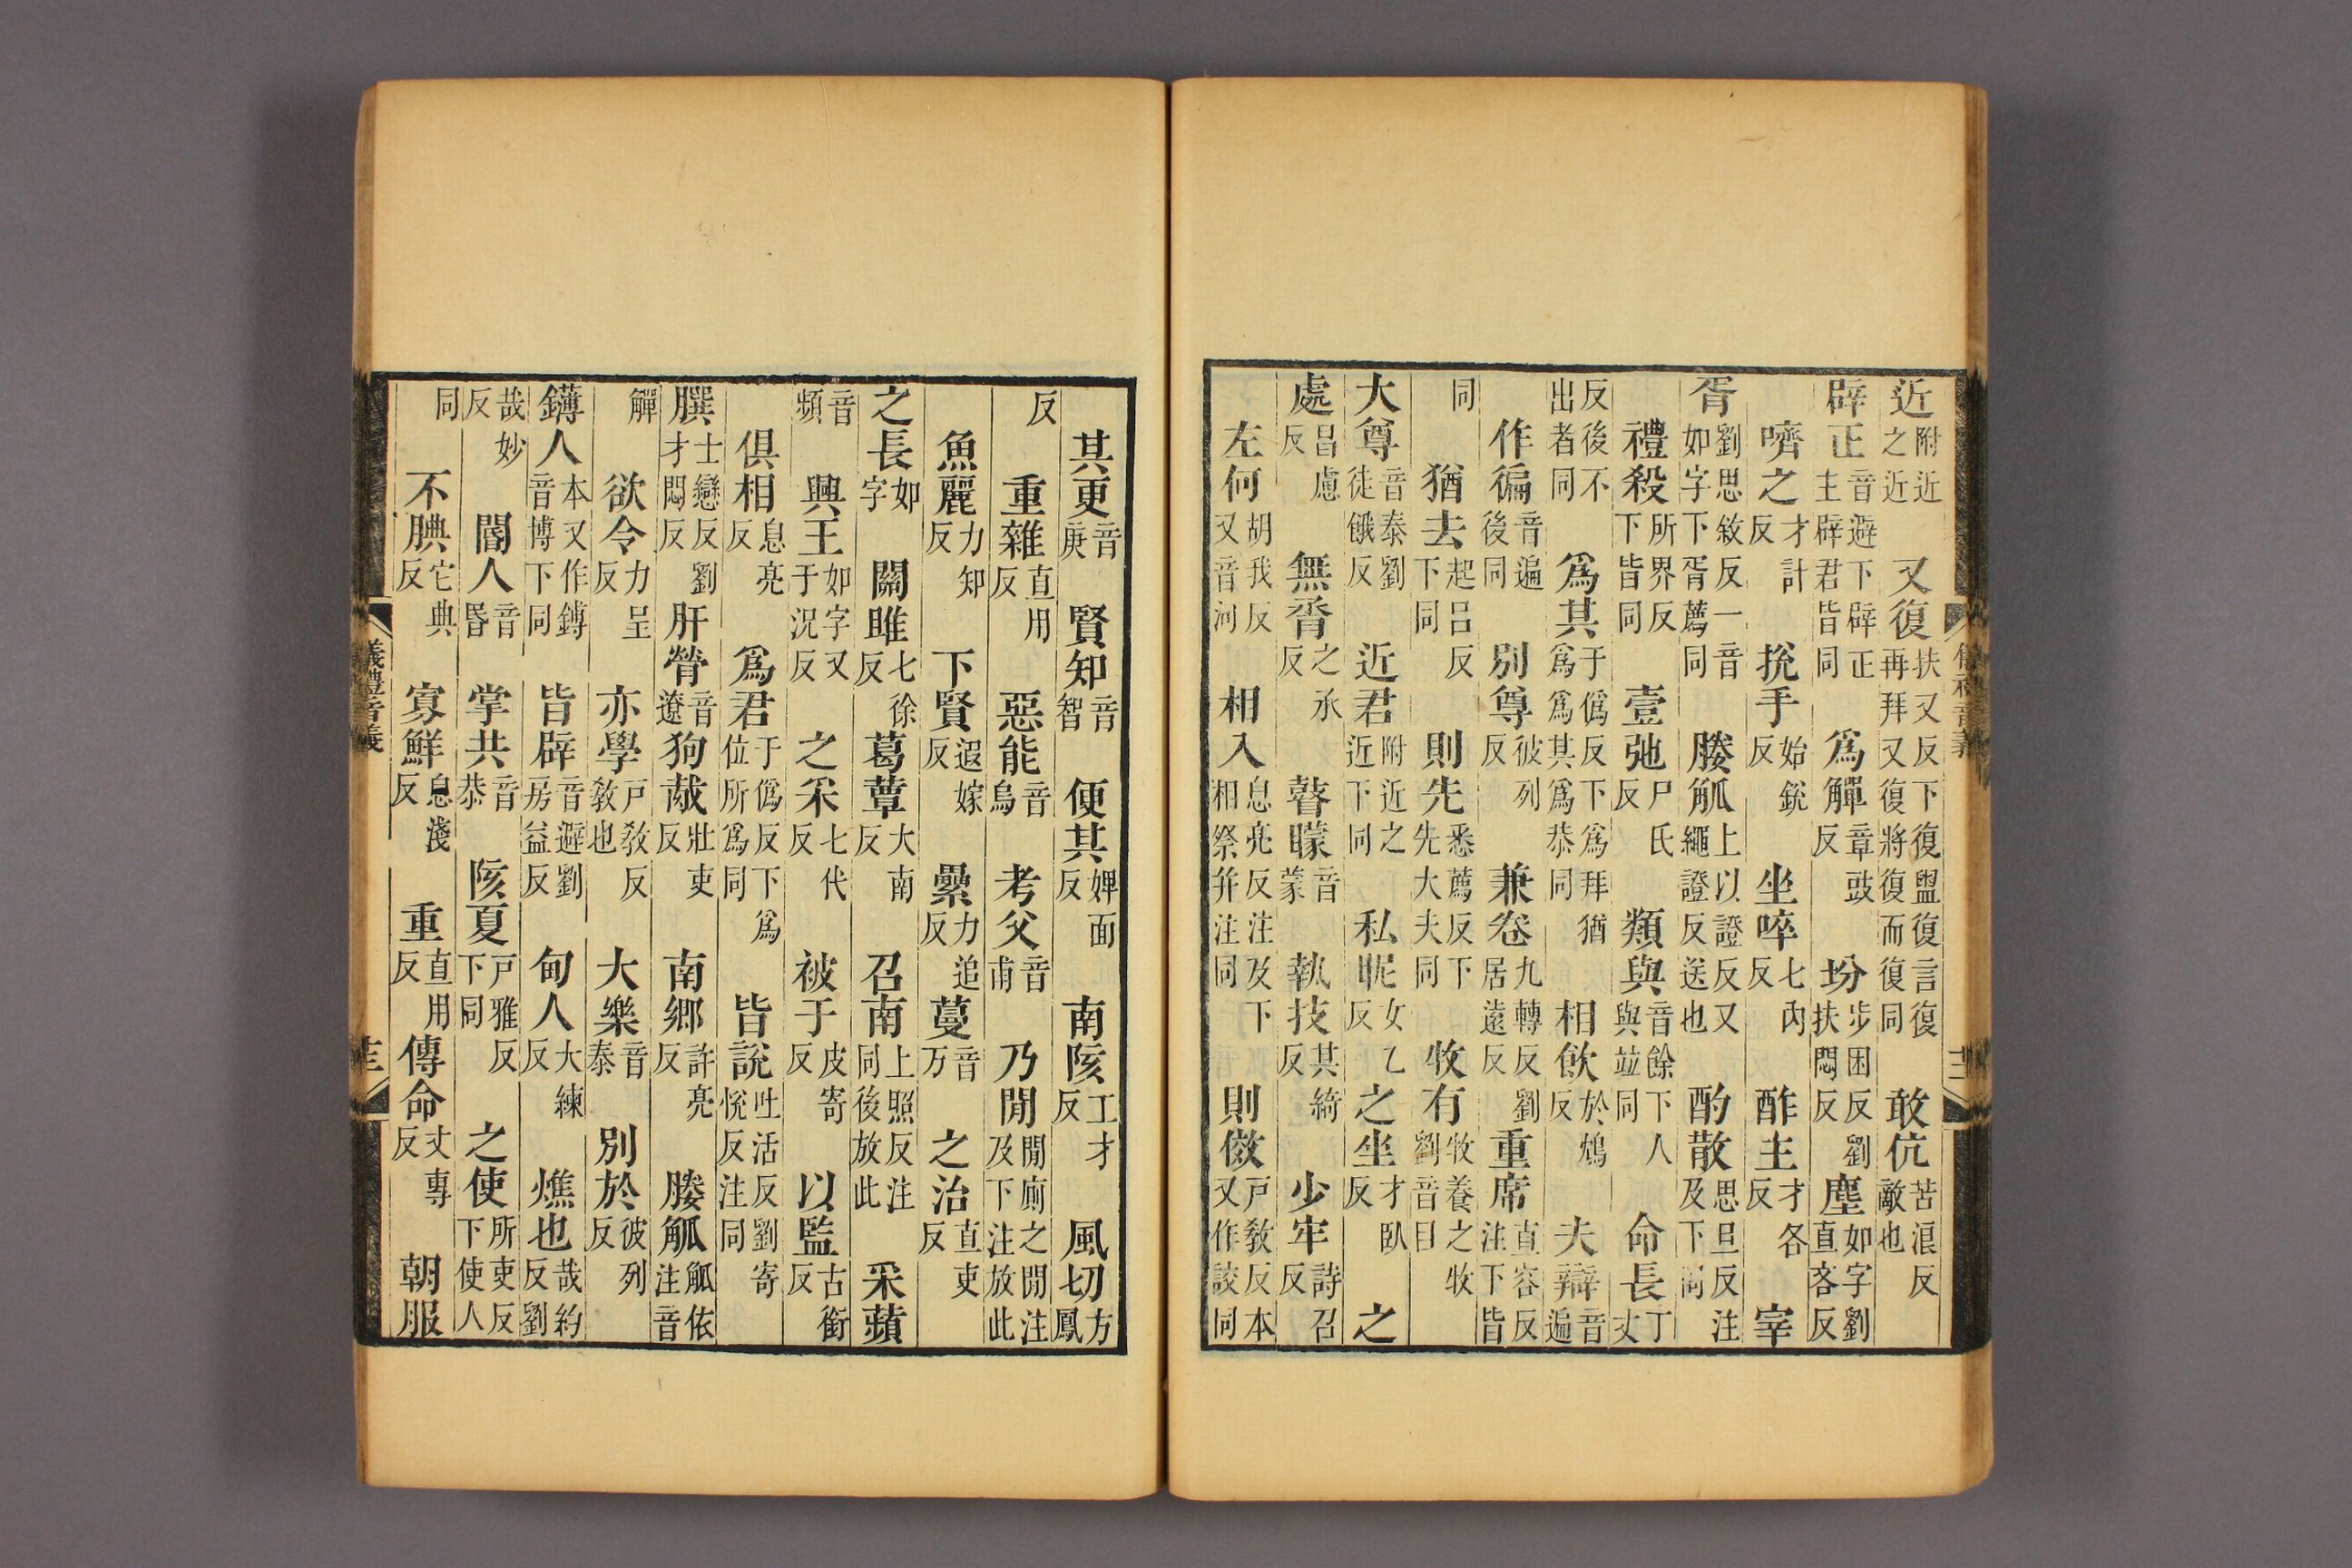 近附近之近 又復扶又反下復盥復言復再拜又復將復而復同 敢伉苦浪反敵也
辟正音避下辟正主辟君皆同 爲觶章豉反 坋步困反劉扶悶反 塵如字劉直吝反
嚌之才計反 挩手始銳反 坐啐七內反 酢主才各反 宰
胥劉思敘反一音如字下胥薦同 媵觚上以證反又繩證反送也 酌散思旦反注及下同
禮殺所界反下皆同 壹弛尸氏反 類與音餘下人與竝同 命長丁丈
反後不出者同 爲其于僞反下爲拜猶爲爲其爲恭同 相飮於鴆反 夫辯音遍
作徧音遍後同 別尊彼列反 兼卷九轉反劉居遠反 重席直容反注下皆
同 猶去起呂反下同 則先悉薦反下先大夫同 牧有牧養之牧劉音目
大尊音泰劉徒餓反 近君附近之近下同 私昵女乙反 之坐才臥反 之
處昌慮反 無脀之承反 瞽矇音蒙 執技其綺反 少牢詩召反
左何胡我反又音河 相入息亮反注及下相祭并注同 則傚戶敎反本又作詨同
其更音庚 賢知音智 便其婢面反 南陔工才反 風切方鳳
反 重雜直用反 惡能音烏 考父音甫 乃閒閒廁之閒注及下注放此
魚麗力知反 下賢遐嫁反 纍力追反 蔓音万 之治直吏反
之長如字 關雎七徐反 葛蕈大南反 召南上照反注同後放此 采蘋
音頻 興王如字又于況反 之采七代反 被于皮寄反 以監古銜反
俱相息亮反 爲君于僞反下爲位所爲同 皆說吐活反劉寄悅反注同
膳士戀反劉才悶反 肝膋音遼 狗胾壯吏反 南鄉許亮反 媵觚觚依注音
觶 欲令力呈反 亦學戶敎反敎也 大樂音泰 別於彼列反
鑮人本又作鎛音博下同 皆辟音避劉房益反 甸人大練反 燋也哉約反劉
哉妙反 閽人音昏 掌共音恭 陔夏戶雅反下同 之使所吏反下使人
同 不腆它典反 寡鮮息淺反 重直用反 傳命丈專反 朝服
儀禮音義